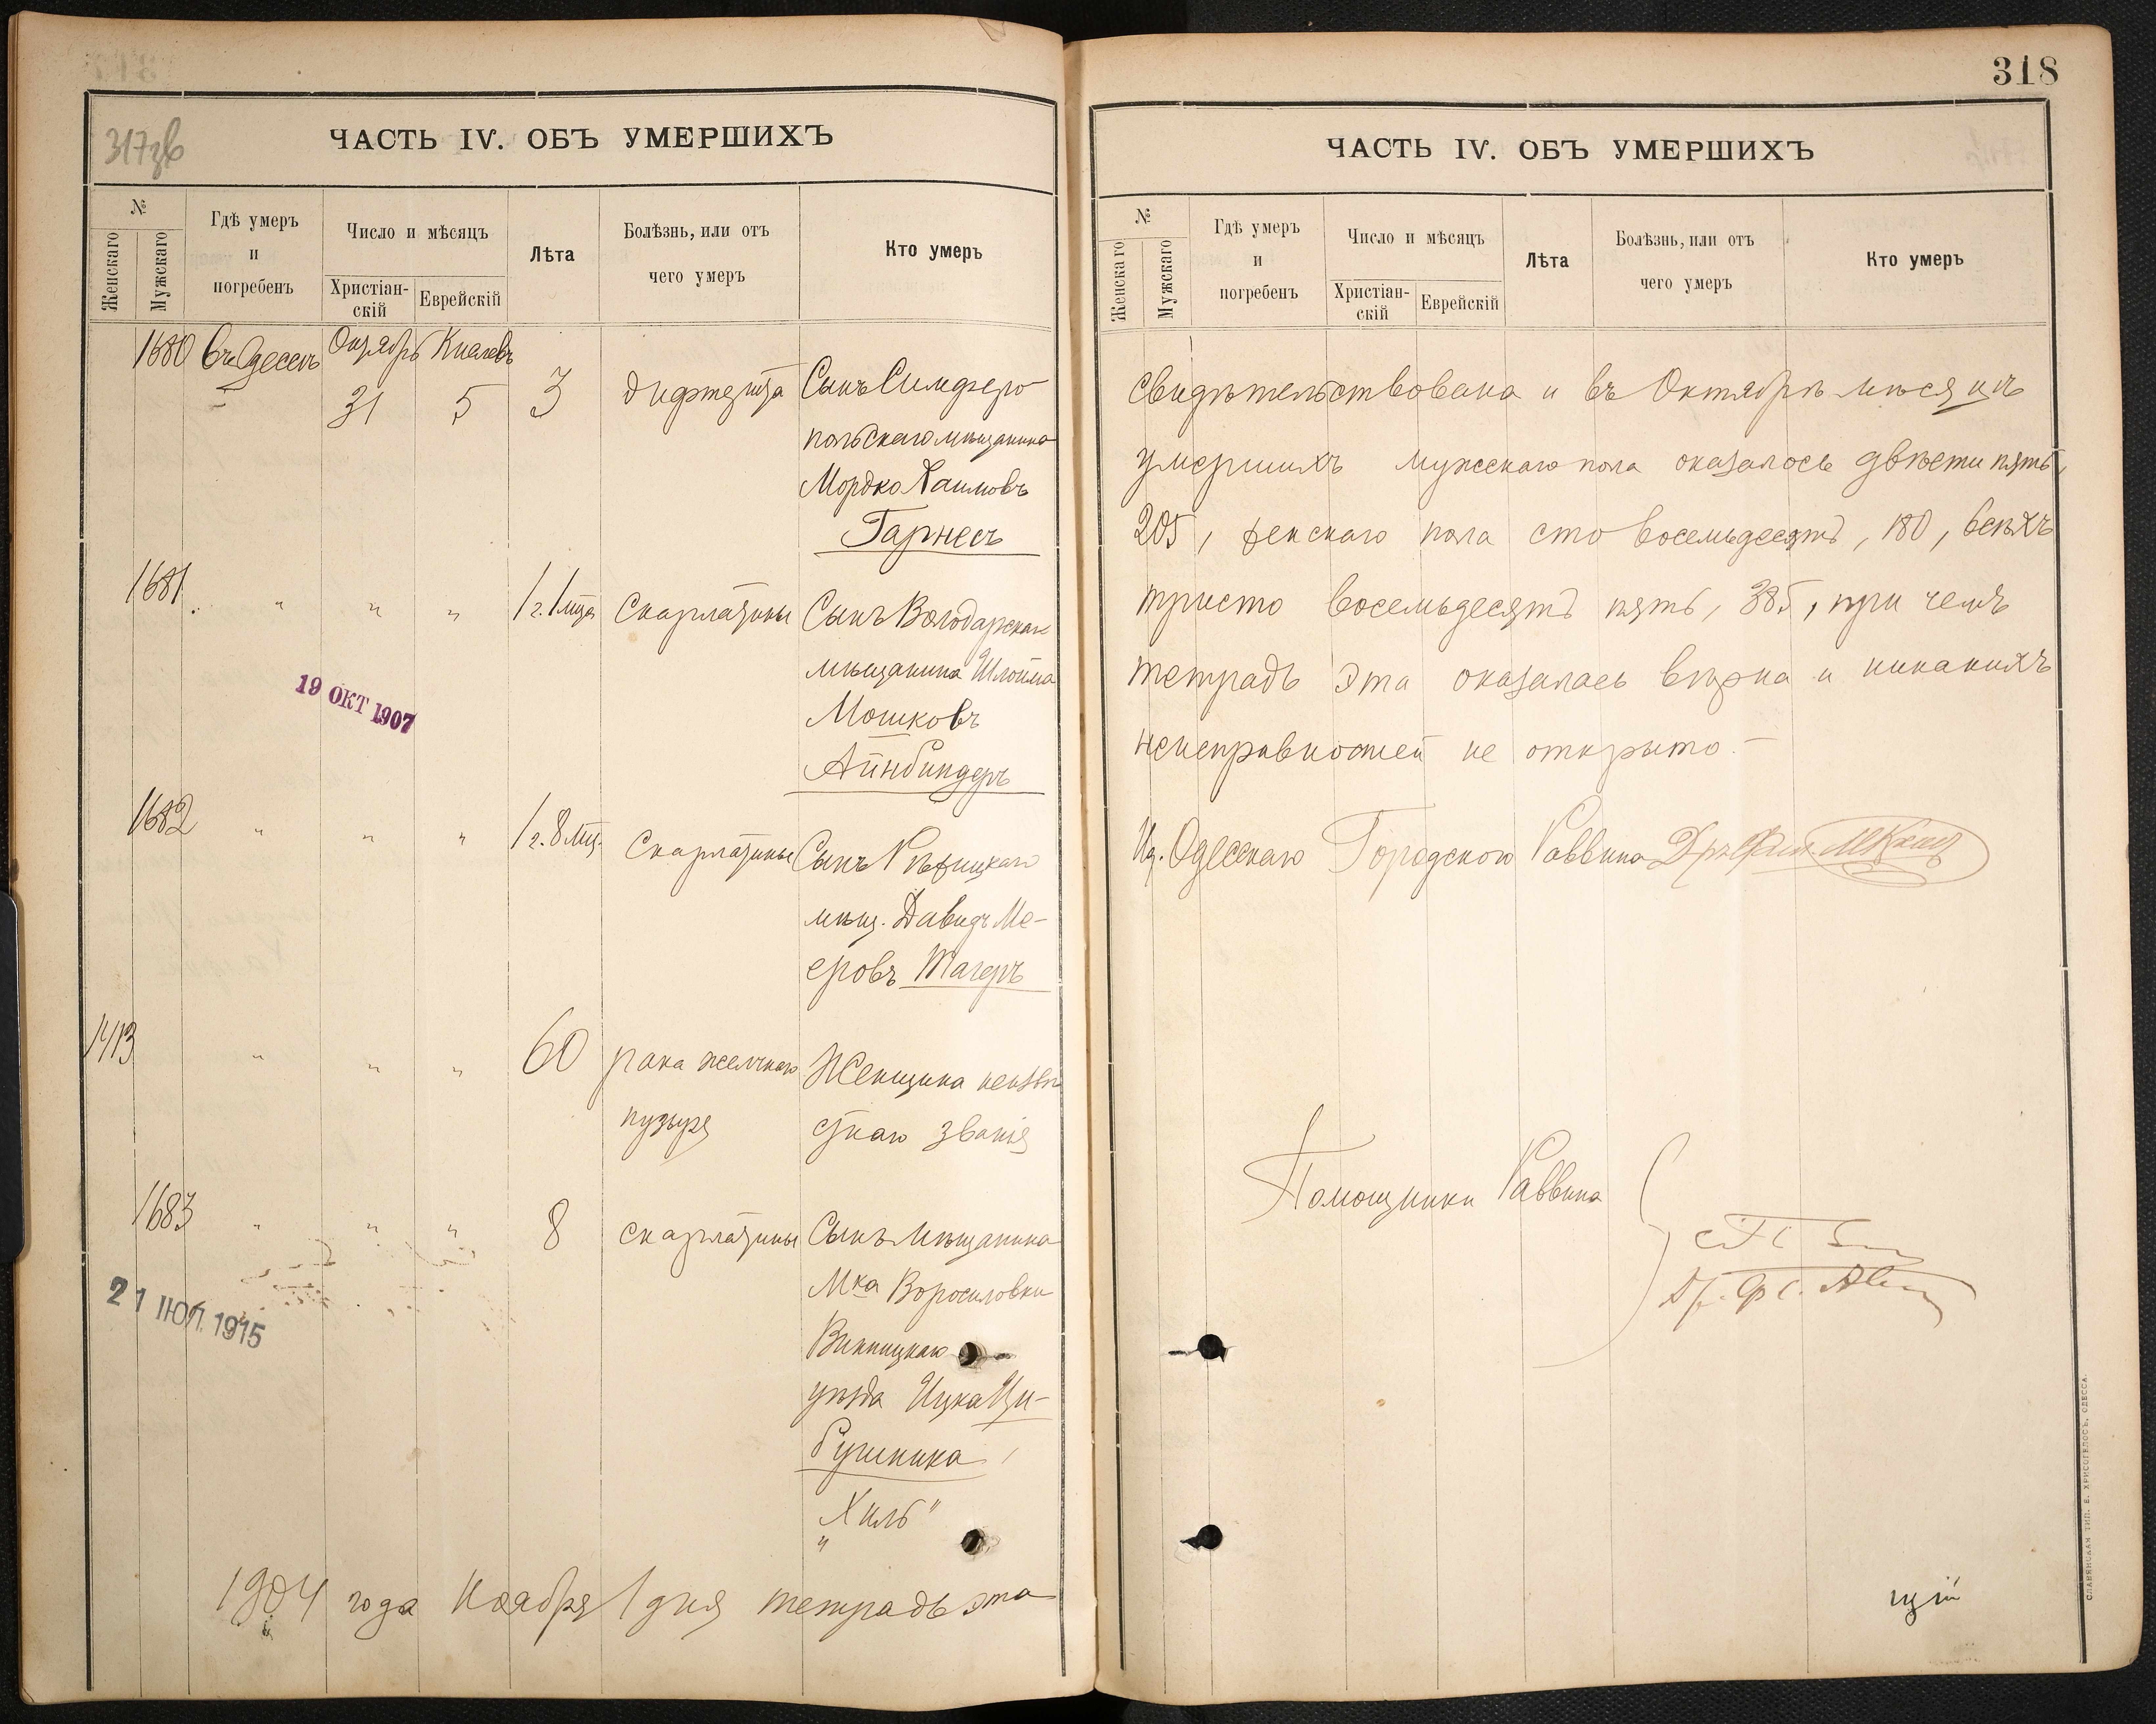 317зв
ЧАСТЬ IV. ОБЪ УМЕРШИХЪ
№
Женскаго
Мужскаго
Гдѣ умеръ
и
погребенъ
Число и мѣсяцъ
Христіан-
скій
Еврейскій
Лѣта
Болѣзнь, или отъ
чего умеръ
Кто умеръ
1680 въ Одессѣ Октябрь Кислевъ
31 5 3 дифтерита Сынъ Симферо-
польскаго мѣщанина
Мордко Хаимовъ
Гарнесъ
1681. " " " 1 г. 1 мца Скарлатины Сынъ Володарскаго
мѣщанина Шлойма
Мошковъ
Айнбиндеръ
19 ОКТ 1907
1682 " " " 1 г. 8 мц. Скарлатины Сынъ Рѣжицкаго
мѣщ. Давидъ Ме-
еровъ Тагеръ
1413 " " " 60 рака желчнаго Женщина неизвѣ
пузыря стнаго званія
1683 " " " 8 скарлатины Сынъ мѣщанина
Мка Воросиловки
Винницкаго
уѣзда Ицка Ци-
бушника
"Хиль"
21 ІЮЛ. 1915
1904 года Ноября 1 дня тетрадь эта
318
ЧАСТЬ IV. ОБЪ УМЕРШИХЪ
№
Женскаго
Мужскаго
Гдѣ умеръ
и
погребенъ
Число и мѣсяцъ
Христіан-
скій
Еврейскій
Лѣта
Болѣзнь, или отъ
чего умеръ
Кто умеръ
свидѣтельствована и въ Октябрѣ мѣсяцѣ
умершихъ мужскаго пола оказалось двѣсти пять,
205, женскаго пола сто восемьдесятъ, 180, всѣхъ
тристо восемьдесятъ пять, 385, при чемъ
тетрадь эта оказалась вѣрна и никакихъ
неисправностей не открыто.-
Из. Одесскаго Городского Раввина Др. Фил.
Помощники Раввина
Др. Ф
щій
СЛАВЯНСКАЯ ТИП. Е. ХРИСОГЕЛОСЪ, ОДЕССА.